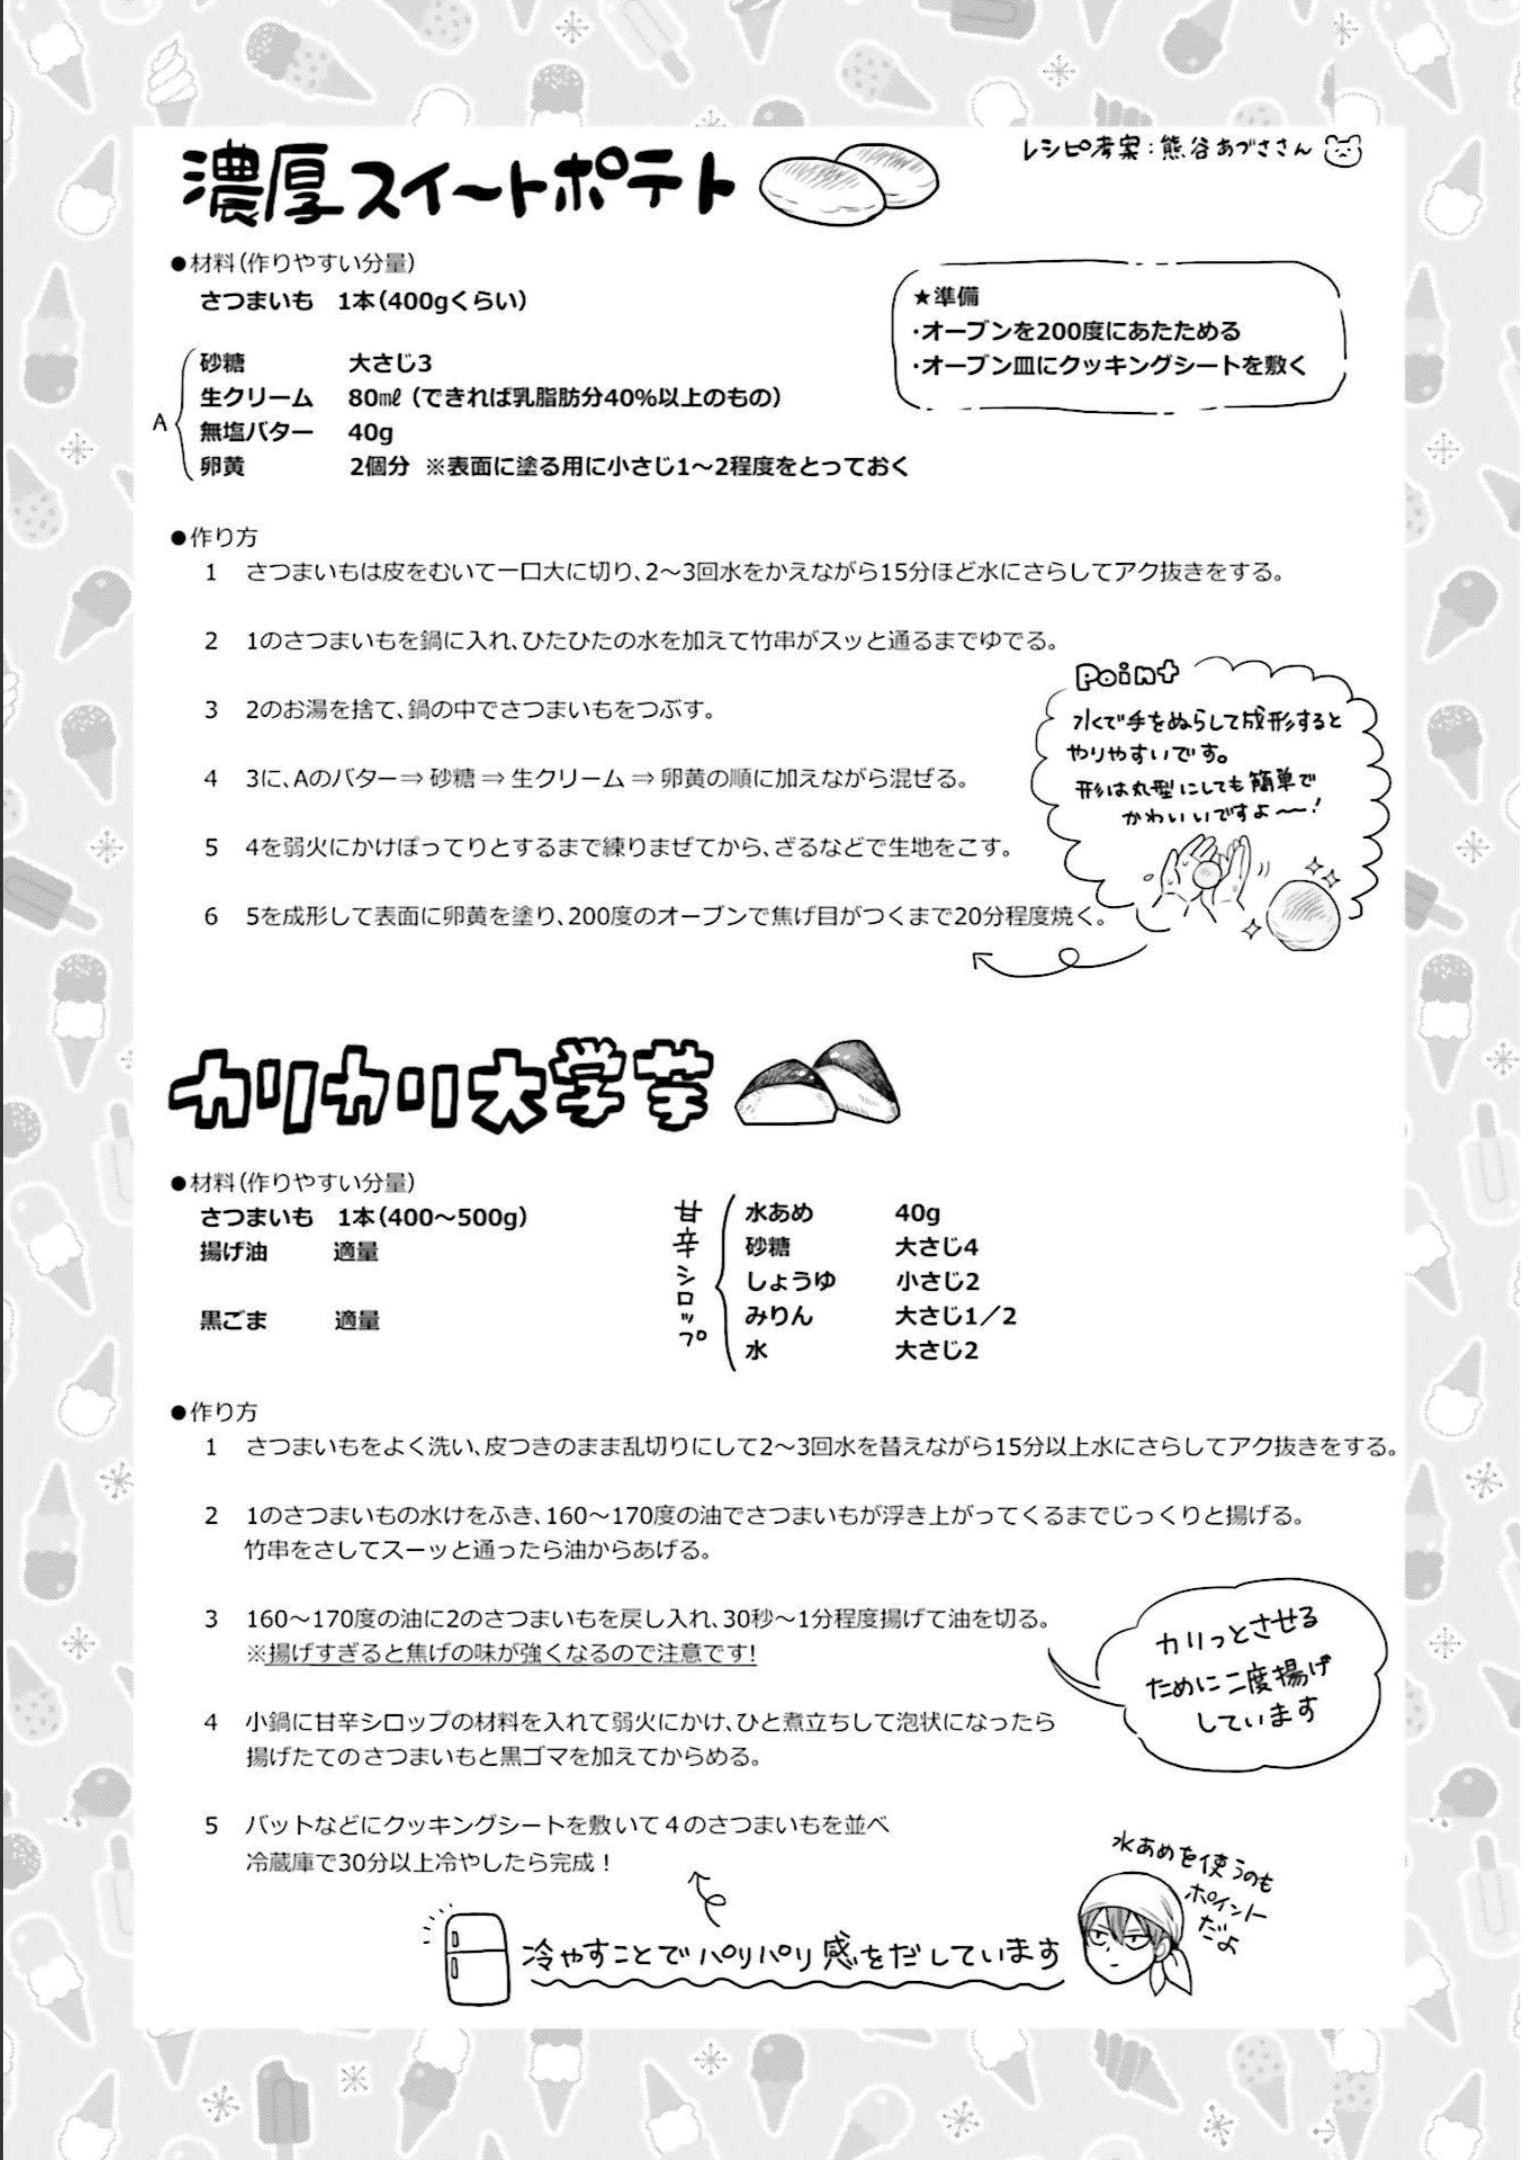 濃厚スイートポテト
レシピ考案：熊谷あづささん
●材料（作りやすい分量）
さつまいも　1本（400gくらい）
A
砂糖　大さじ3
生クリーム　80㎖（できれば乳脂肪分40%以上のもの）
無塩バター　40g
卵黄　2個分　※表面に塗る用に小さじ1～2程度をとっておく
★準備
・オーブンを200度にあたためる
・オーブン皿にクッキングシートを敷く
●作り方
1　さつまいもは皮をむいて一口大に切り、2～3回水をかえながら15分ほど水にさらしてアク抜きをする。
2　1のさつまいもを鍋に入れ、ひたひたの水を加えて竹串がスッと通るまでゆでる。
3　2のお湯を捨て、鍋の中でさつまいもをつぶす。
4　3に、Aのバター⇒砂糖⇒生クリーム⇒卵黄の順に加えながら混ぜる。
5　4を弱火にかけぽってりとするまで練りまぜてから、ざるなどで生地をこす。
6　5を成形して表面に卵黄を塗り、200度のオーブンで焦げ目がつくまで20分程度焼く。
Point
水で手をぬらして成形すると
やりやすいです。
形は丸型にしても簡単で
かわいいですよ～～！
カリカリ大学芋
●材料（作りやすい分量）
さつまいも　1本（400～500g）
揚げ油　適量
黒ごま　適量
甘辛シロップ
水あめ　40g
砂糖　大さじ4
しょうゆ　小さじ2
みりん　大さじ1／2
水　大さじ2
●作り方
1　さつまいもをよく洗い、皮つきのまま乱切りにして2～3回水を替えながら15分以上水にさらしてアク抜きをする。
2　1のさつまいもの水けをふき、160～170度の油でさつまいもが浮き上がってくるまでじっくりと揚げる。
竹串をさしてスーッと通ったら油からあげる。
3　160～170度の油に2のさつまいもを戻し入れ、30秒～1分程度揚げて油を切る。
※揚げすぎると焦げの味が強くなるので注意です!
カリっとさせる
ために二度揚げ
しています
4　小鍋に甘辛シロップの材料を入れて弱火にかけ、ひと煮立ちして泡状になったら
揚げたてのさつまいもと黒ゴマを加えてからめる。
5　バットなどにクッキングシートを敷いて４のさつまいもを並べ
冷蔵庫で30分以上冷やしたら完成！
冷やすことでパリパリ感をだしています
水あめを使うのも
ポイント
だよ